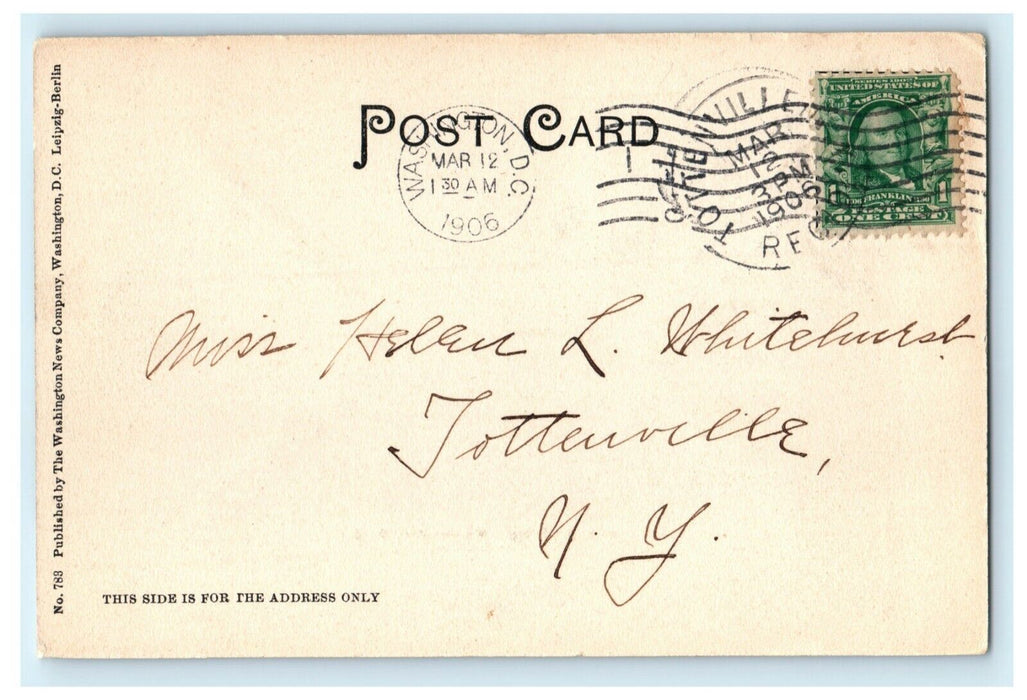 POST CARD
WASHINGTON, D.C.
MAR 12
1 30 AM
1906
1
TOTTENVILLE
MAR
12
3 PM
1906
REC'D
SERIES 1902
UNITED STATES OF
AMERICA
FRANKLIN
POSTAGE
1 1
ONE CENT
Miss Helen L. Whitehurst
Tottenville,
N. Y.
THIS SIDE IS FOR THE ADDRESS ONLY
No. 783 Published by The Washington News Company, Washington, D.C. Leipzig-Berlin